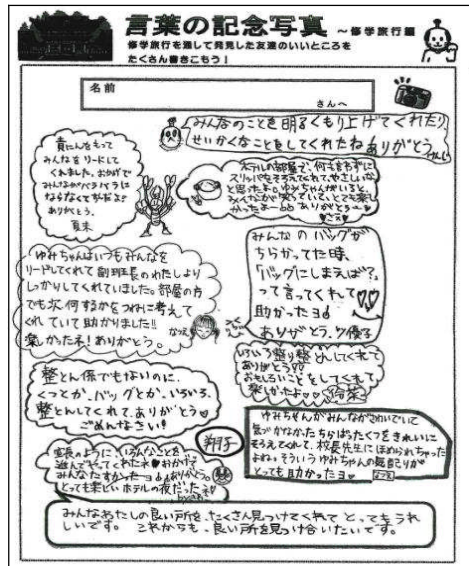 言葉の記念写真 ～修学旅行編
修学旅行を通して発見した友達のいいところを
たくさん書きこもう！
名前
さんへ
みんなのことを明るくもり上げてくれたり、
せいかくなことをしてくれたねありがとう
責にんをもって
みんなをリードして
くれました。おかげで
みんながバラバラに
ならなくて
ありがとう。
夏未
ホテルの部屋で、何も言わずに
スリッパをそろえてくれて、やさしいな
と思ったよ。ゆみちゃんがいると、
みんなが笑っていて、とても楽し
かったよ ありがとう
みんなのバッグが
ちらかってた時、
「バッグにしまえば?」
って言ってくれて♡♡
助かったヨ
ありがとう。優子
ゆみちゃんはいつもみんなを
リードしてくれて副班長のわたしより
しっかりしてくれていました。部屋の方
でも次何するかをつねに考えて
くれていて助かりました!!
楽しかったネ!ありがとう。
なつえ
いろいろ整り整とんしてくれて
ありがとう
おもしろいことをしてくれて
楽しかったよ
整とん係でもないのに、
くつとか、バッグとか、いろいろ、
整とんしてくれて、ありがとう
ごめんなさい!
翔子
ゆみちゃんがみんながさわいでいて
気づかなかったちらばったくつをきれいに
そろえてくれて、校長先生にほめられちゃった
よね。そういうゆみちゃんの気配りが
とっても助かったヨ
室長のように、いろんなことを
進んでやってくれたネ おかげで
みんなたすかったヨ ありがとう。
とっても楽しいホテルの夜だった
みんなわたしの良い所を、たくさん見つけてくれて とってもうれ
しいです。 これからも、良い所を見つけ合いたいです。